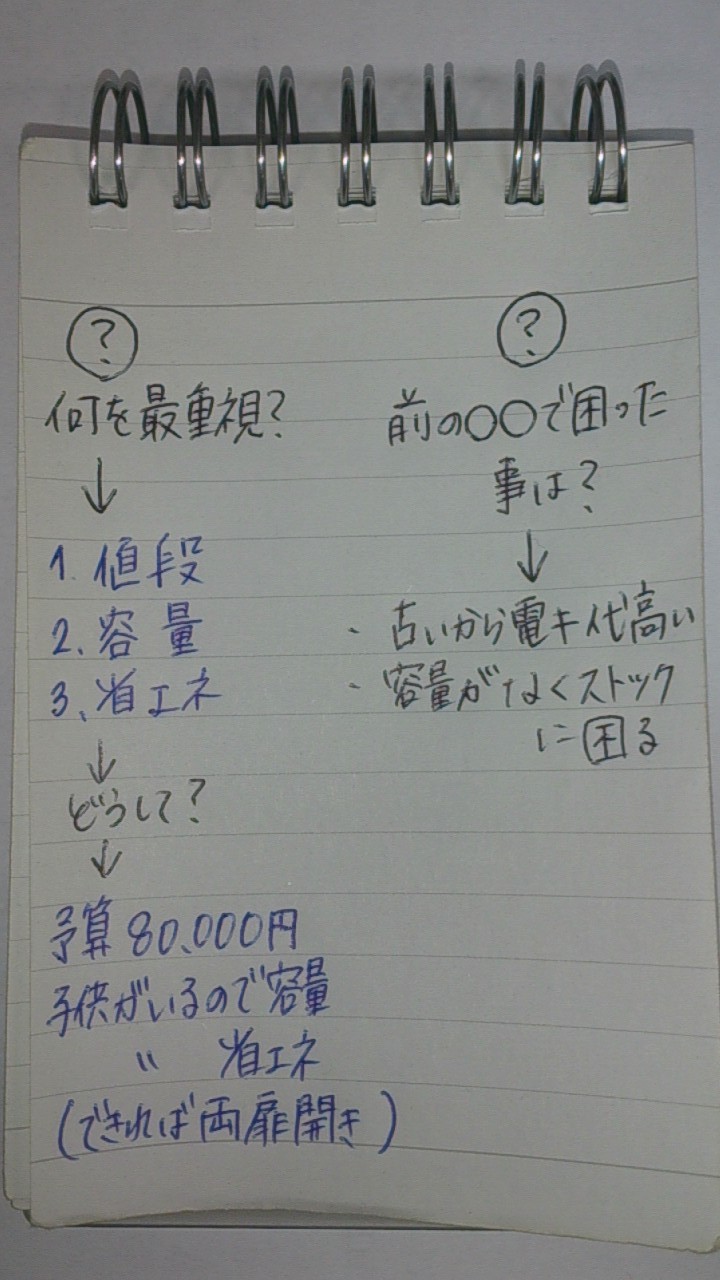 ?
何を最重視?
↓
1. 値段
2. 容量
3. 省エネ
↓
どうして?
↓
予算 80.000円
子供がいるので容量
〃 省エネ
(できれば両扉開き)
?
前の○○で困った
事は?
↓
・古いから電キ代高い
・容量がなくストック
に困る